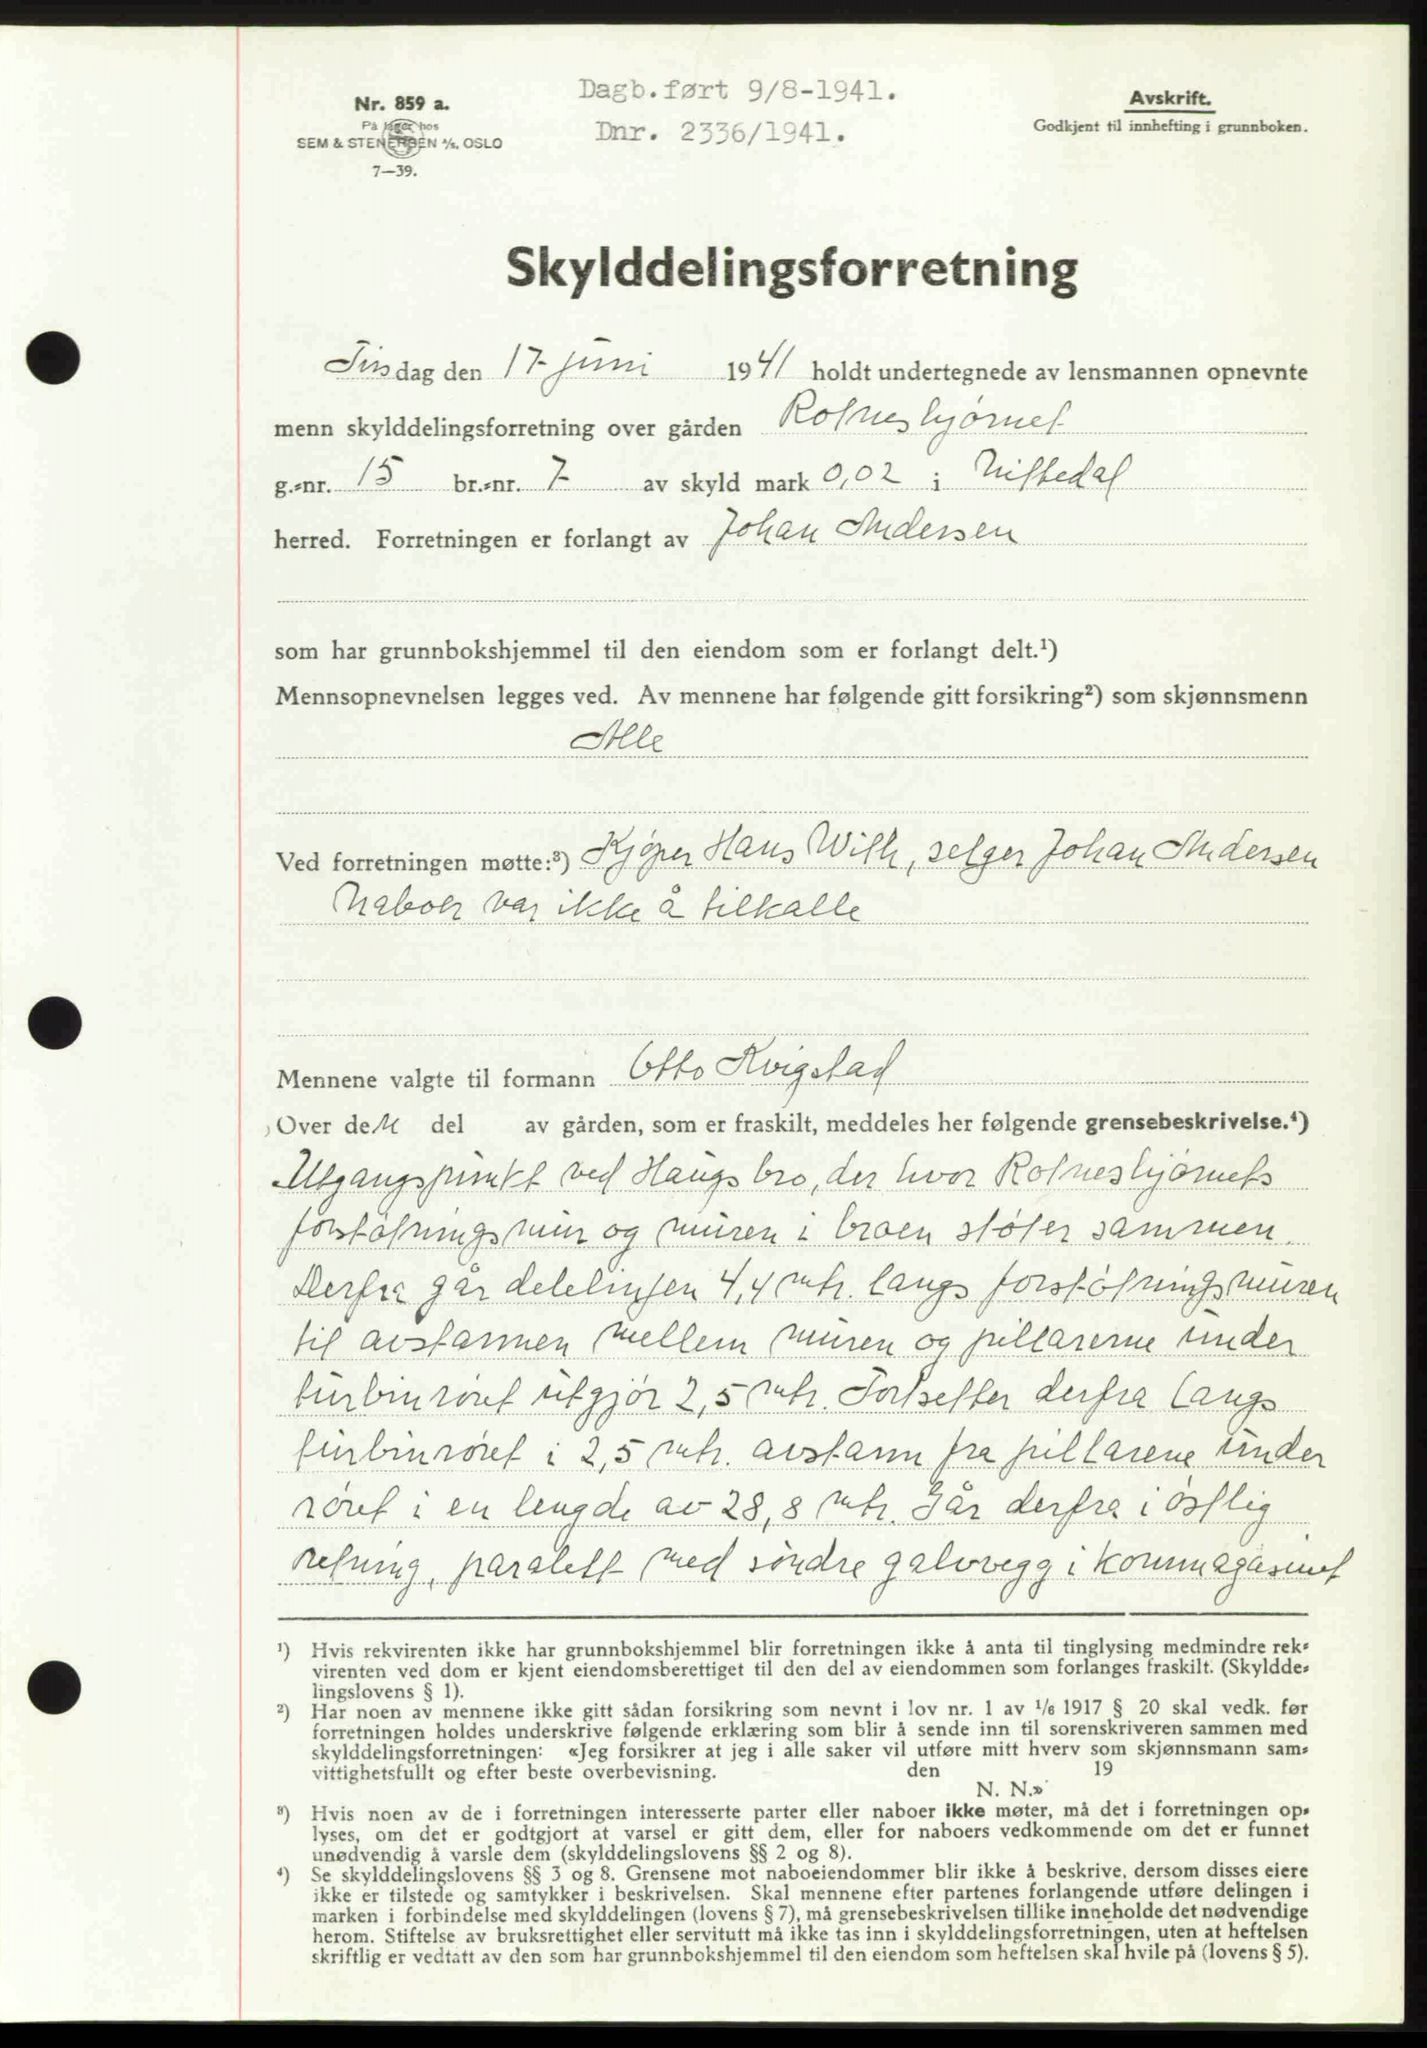 Nr. 859 a.
På lager hos
SEM & STENERSEN A/S. OSLO
7—39.
Dagb.ført 9/8-1941.
Dnr. 2336/1941.
Avskrift.
Godkjent til innhefting i grunnboken.
Skylddelingsforretning
Tirsdag den 17 juni 1941 holdt undertegnede av lensmannen opnevnte
menn skylddelingsforretning over gården Rotneshjørnet
g.-nr. 15 br.-nr. 7 av skyld mark 0,02 i Nittedal
herred. Forretningen er forlangt av Johan Andersen
som har grunnbokshjemmel til den eiendom som er forlangt delt.¹)
Mennsopnevnelsen legges ved. Av mennene har følgende gitt forsikring²) som skjønnsmenn
Alle
Ved forretningen møtte:³) Kjøper Hans Wilh, selger Johan Andersen
Naboer var ikke å tilkalle
Mennene valgte til formann Otto Kvigstad
Over den del av gården, som er fraskilt, meddeles her følgende grensebeskrivelse.⁴)
Utgangspunkt ved Haugsbro, der hvor Rotneshjørnets
forstøtningsmur og muren i broen støter sammen.
Derfra går delelinjen 4,4 mtr. langs forstøtningsmuren
til avstannen mellem muren og pillarerne under
turbinrøret utgjør 2,5 mtr. Fortsetter derfra langs
turbinrøret i 2,5 mtr. avstann fra pillarene under
røret i en lengde av 28,8 mtr. Går derfra i østlig
retning, paralelt med søndre galvvegg i kornmagasinet
¹) Hvis rekvirenten ikke har grunnbokshjemmel blir forretningen ikke å anta til tinglysing medmindre rek-
virenten ved dom er kjent eiendomsberettiget til den del av eiendommen som forlanges fraskilt. (Skyldde-
lingslovens § 1).
²) Har noen av mennene ikke gitt sådan forsikring som nevnt i lov nr. 1 av 1/6 1917 § 20 skal vedk. før
forretningen holdes underskrive følgende erklæring som blir å sende inn til sorenskriveren sammen med
skylddelingsforretningen: «Jeg forsikrer at jeg i alle saker vil utføre mitt hverv som skjønnsmann sam-
vittighetsfullt og efter beste overbevisning. den 19
N. N.»
³) Hvis noen av de i forretningen interesserte parter eller naboer ikke møter, må det i forretningen op-
lyses, om det er godtgjort at varsel er gitt dem, eller for naboers vedkommende om det er funnet
unødvendig å varsle dem (skylddelingslovens §§ 2 og 8).
⁴) Se skylddelingslovens §§ 3 og 8. Grensene mot naboeiendommer blir ikke å beskrive, dersom disses eiere
ikke er tilstede og samtykker i beskrivelsen. Skal mennene efter partenes forlangende utføre delingen i
marken i forbindelse med skylddelingen (lovens § 7), må grensebeskrivelsen tillike inneholde det nødvendige
herom. Stiftelse av bruksrettighet eller servitutt må ikke tas inn i skylddelingsforretningen, uten at heftelsen
skriftlig er vedtatt av den som har grunnbokshjemmel til den eiendom som heftelsen skal hvile på (lovens § 5).